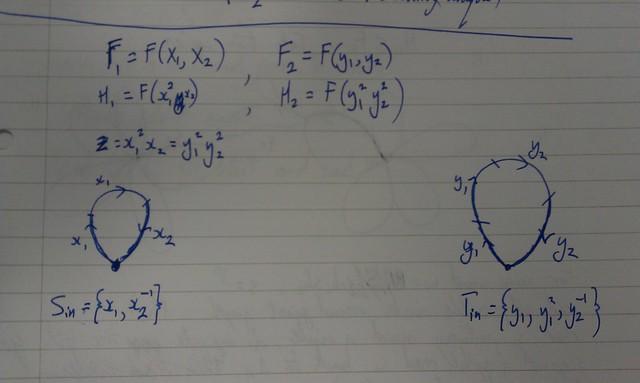 F₁ = F(x₁, x₂) , F₂ = F(y₁, y₂)
H₁ = F(x₁² x₂) , H₂ = F(y₁² y₂²)
z = x₁² x₂ = y₁² y₂²
x₁ y₂
y₁
x₁ x₂ y₁ y₂
Sᵢₙ = {x₁, x₂⁻¹} Tᵢₙ = {y₁, y₁², y₂⁻¹}